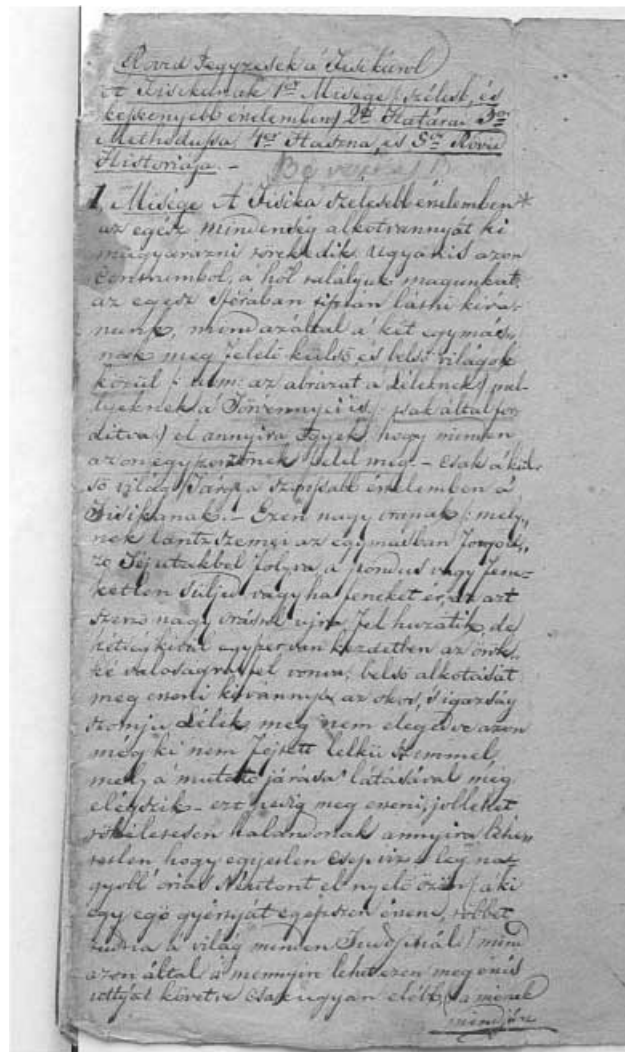 Rövid Jegyzések a' Fisikárol
A Fisikának 1ör Misége szélesb, és
képsenyebb értelemben, 2or Határai 3or
Methodussa 4er Haszna, és 5ör Rövid
Historiája. –
Bévezetés
1, Misége A Fisika szélesebb értelemben *
az egész mindenség alkotvannyát ki
magyarázni törekedik Ugyan is azon
Centrumbol, a' hól találjuk magunkat,
az egész Sférában tisztán látni kivá-
nunk, mind azáltal a' két egymás-
nak meg felelö külsö, és belsö világok
közül az ábrázat a' Léleknek
lyeknek a' Törvennyei is csak által for
ditva el annyira egyek, hogy minden
azon egy nek felel meg. – Csak a' kül-
sö világ Tárgya szorossabb értelemben a'
Fisikanak. – Ezen nagy orának mely-
nek lántzszemei az egymásban
ze Tejutakbol folyva, a' pondus vagy fene-
ketlen sülljed vagy ha feneket ér, az azt
szerzö nagy orástol ujra fel huzatik, de
kétségkivül egyszer van kezdetben az örök-
ké valoságra fel vonva; belsö alkotását
meg érteni kivánnya az okos, 's igazság
szomju Lélek, meg nem elégedve azon
még ki nem fejtett lelkü szemmel,
mely a' mutató járása látásával még
elégszik – ezt pedig meg érteni, jollehet
tökéletesen halandonak annyira lehe-
tetlen hogy egyetlen csep viz a' leg nagy
gyobb oriás Neutont el nyelö özön, a' ki
egy égö gyertyát egészszen értene, többet
tudna a' világ minden Tudossinál mind
azon által a' mennyire lehet ezen meg érés
uttyát követve csak ugyan elöbb, a' minek
mindjárt